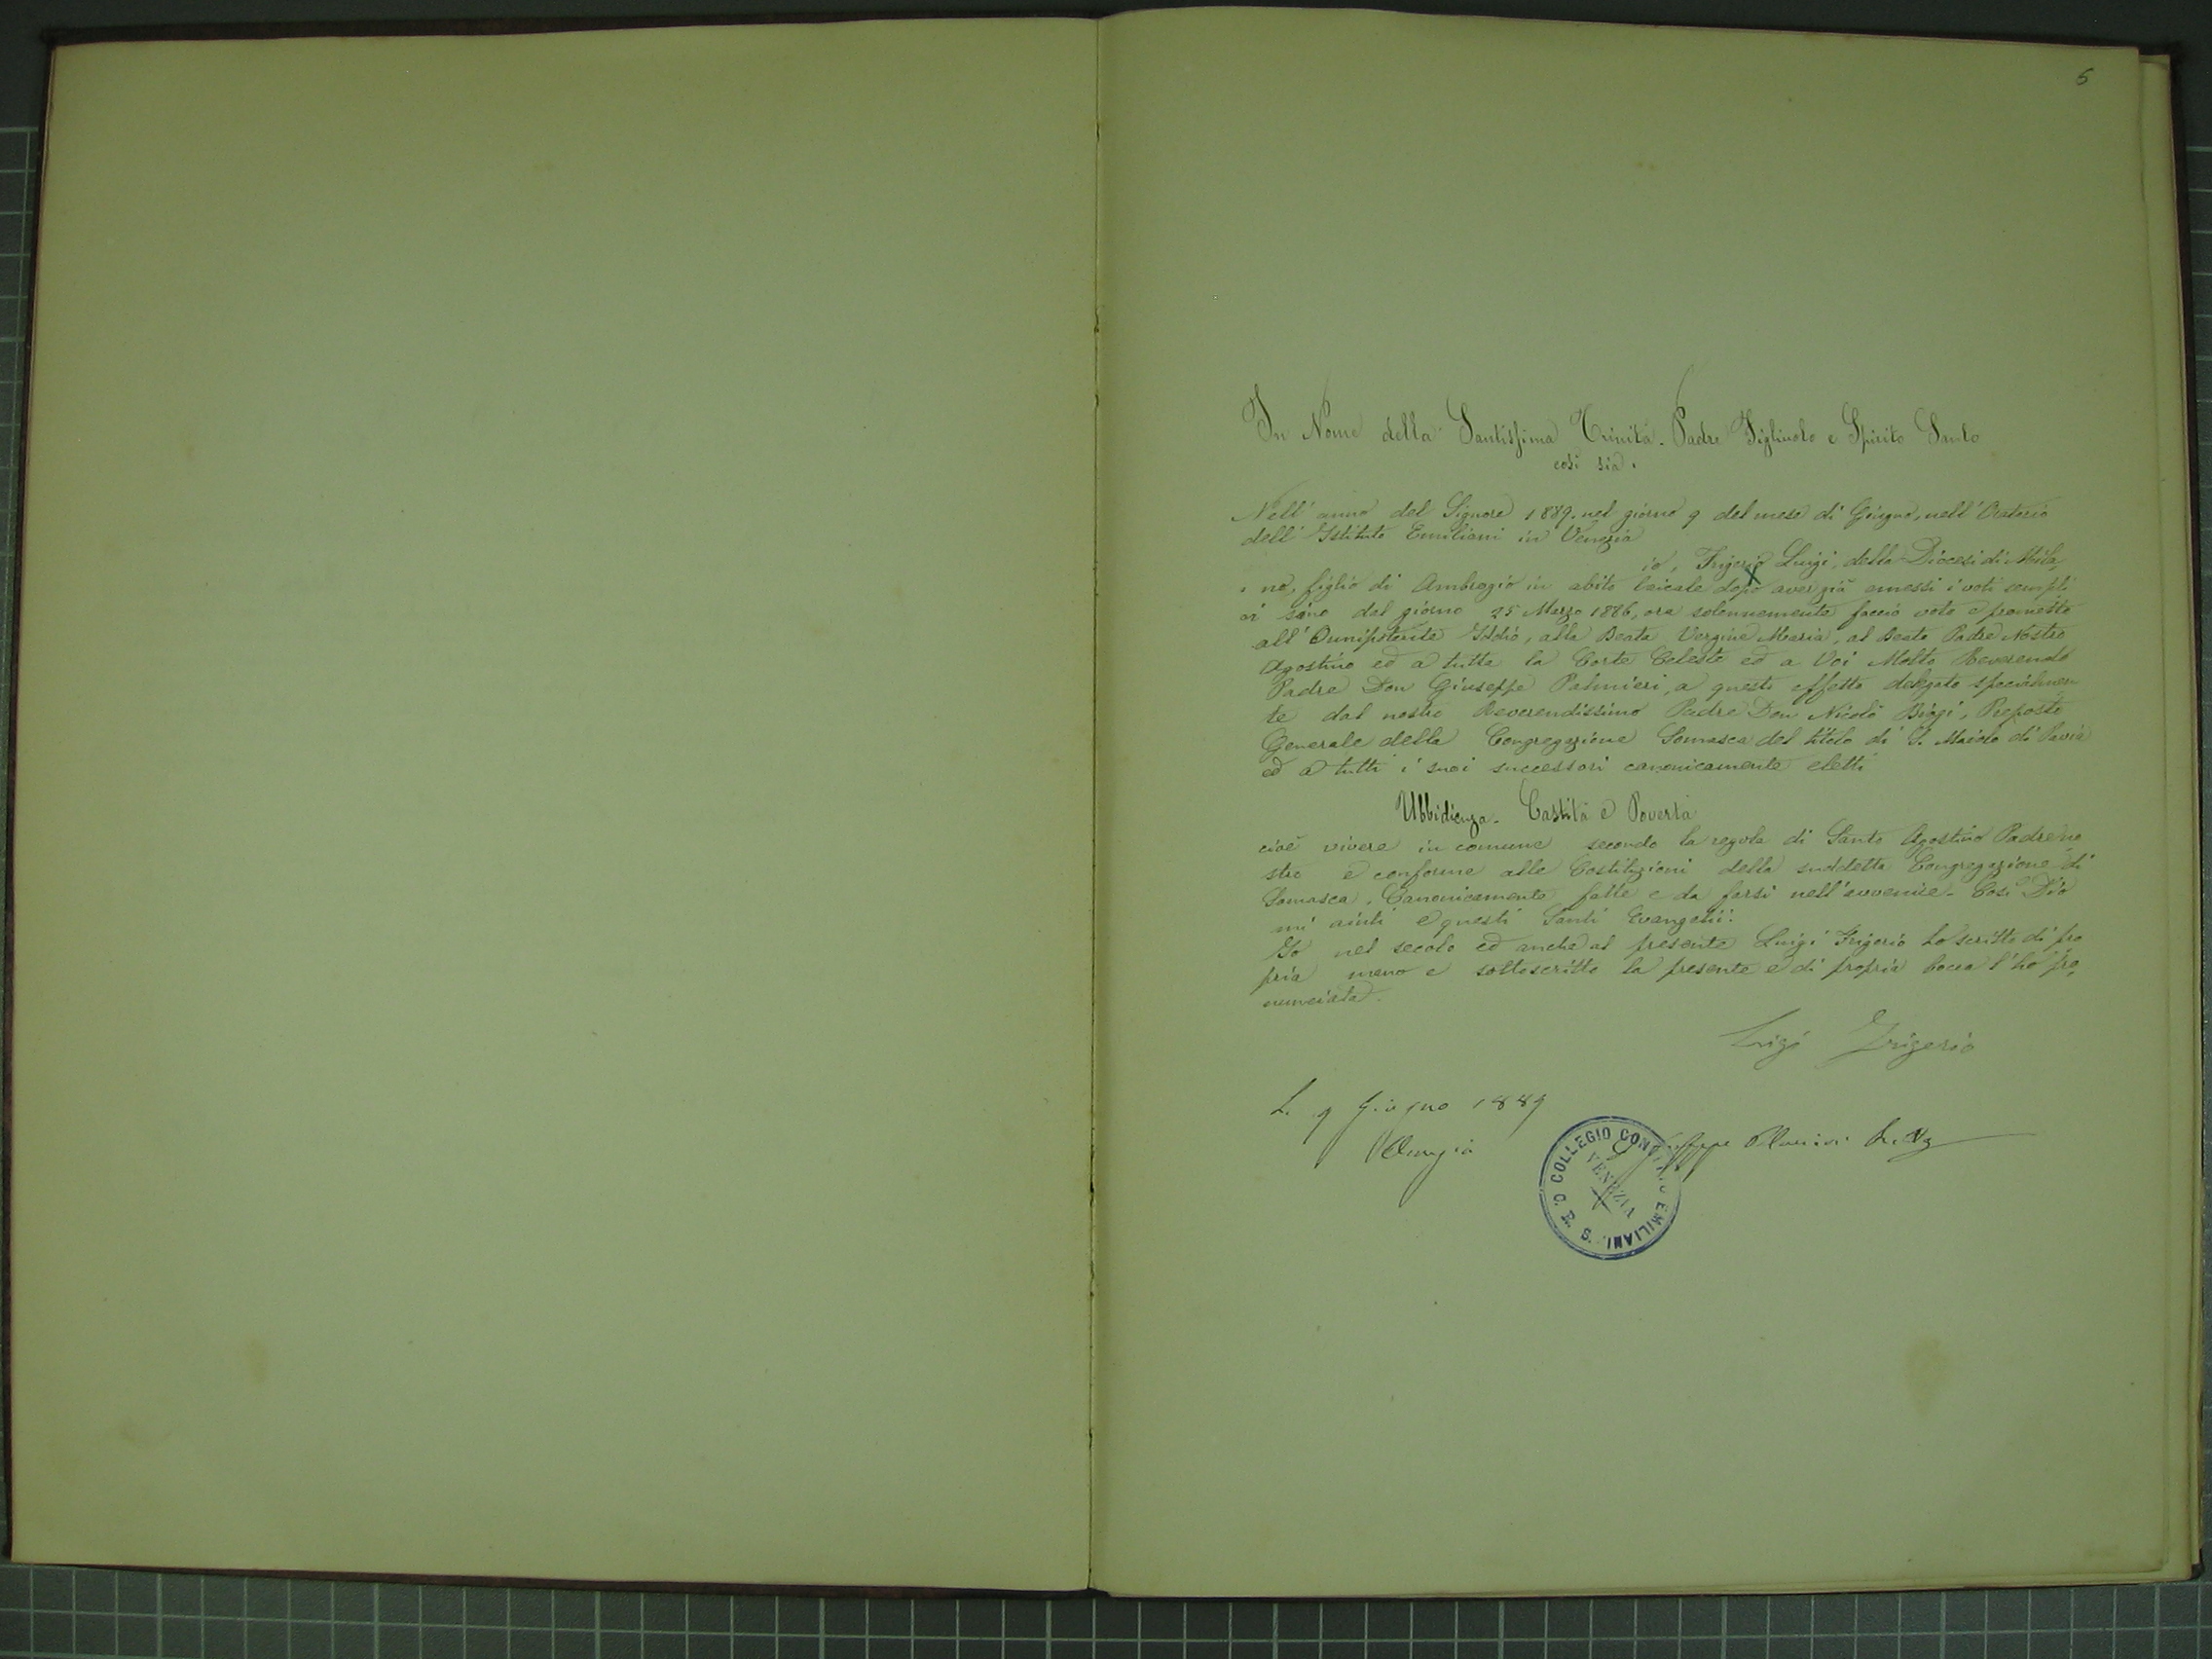 5
In Nome della Santissima Trinità. Padre Figliuolo e Spirito Santo
così sia.
Nell' anno del Signore 1889. nel giorno 9 del mese di Giugno, nell' Oratorio
dell' Istituto Emiliani in Venezia
io, Frigerio Luigi, della Diocesi di Mila,
no, figlio di Ambrogio in abito laicale dopo aver già emessi i voti sempli
ci sino dal giorno 25 Marzo 1886, ora solennemente faccio voto e prometto
all' Onnipotente Iddio, alla Beata Vergine Maria, al Beato Padre Nostro
Agostino ed a tutta la Corte Celeste ed a Voi Molto Reverendo
Padre Don Giuseppe Palmieri, a questo effetto delegato specialmen
te dal nostro Reverendissimo Padre Don Nicolò Biagi, Preposto
Generale della Congregazione Somasca del titolo di S. Maiolo di Pavia
ed a tutti i suoi successori canonicamente eletti
Ubbidienza. Castità e Povertà
cioè vivere in comune secondo la regola di Santo Agostino Padre no
stro e conforme alle Costituzioni della suddetta Congregazione di
Somasca, Canonicamente fatte e da farsi nell'avvenire. Così Dio
mi aiuti e questi Santi Evangelii.
Io nel secolo ed anche al presente Luigi Frigerio ho scritto di pro
pria mano e sottoscritto la presente e di propria bocca l'ho pro,
nunciata.
Luigi Frigerio
L. 9 Giugno 1889
Venezia
Giuseppe Palmieri
COLLEGIO CONVITTO EMILIANI. C. R. S.
VENEZIA